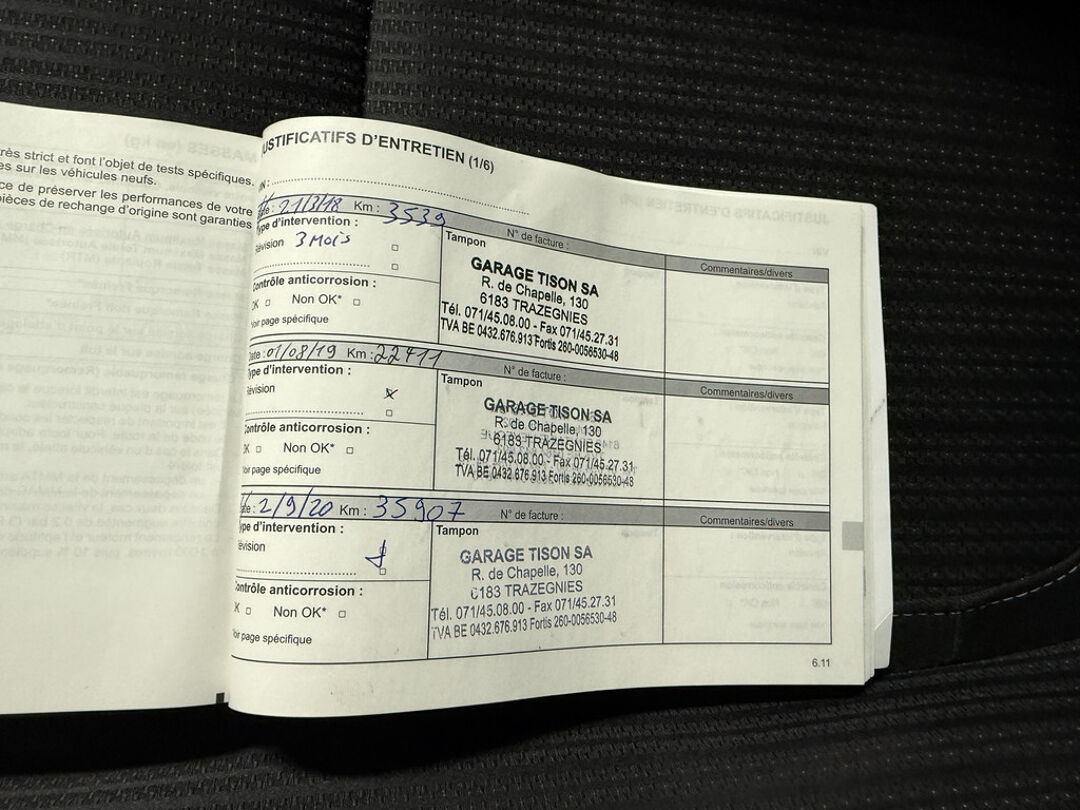 rès strict et font l'objet de tests spécifiques.
es sur les véhicules neufs.
ce de préserver les performances de votre
pièces de rechange d'origine sont garanties
USTIFICATIFS D'ENTRETIEN (1/6)
Date : 21/3/18 Km : 3539 N° de facture :
Type d'intervention :
Révision 3 Mois
Tampon
Commentaires/divers
GARAGE TISON SA
R. de Chapelle, 130
6183 TRAZEGNIES
Tél. 071/45.08.00 - Fax 071/45.27.31
TVA BE 0432.676.913 Fortis 260-0056530-48
Contrôle anticorrosion :
OK □ Non OK* □
Voir page spécifique
Date : 01/08/19 Km : 22411 N° de facture :
Type d'intervention :
Révision
Tampon
Commentaires/divers
GARAGE TISON SA
R. de Chapelle, 130
6183 TRAZEGNIES
Tél. 071/45.08.00 - Fax 071/45.27.31
TVA BE 0432.676.913 Fortis 260-0056530-48
Contrôle anticorrosion :
OK □ Non OK* □
Voir page spécifique
Date : 2/9/20 Km : 35907 N° de facture :
Type d'intervention :
Révision
Tampon
Commentaires/divers
GARAGE TISON SA
R. de Chapelle, 130
6183 TRAZEGNIES
Tél. 071/45.08.00 - Fax 071/45.27.31
TVA BE 0432.676.913 Fortis 260-0056530-48
Contrôle anticorrosion :
OK □ Non OK* □
Voir page spécifique
6.11